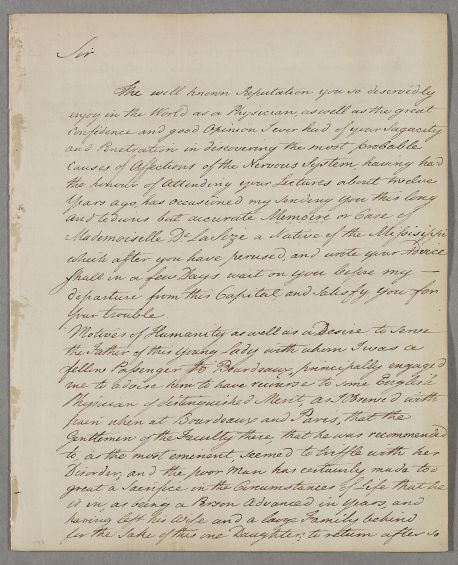 Sir
The well known Reputation you so deservedly
enjoy in the World as a Physician, as well as the great
Confidence and good Opinion I ever had of your Sagacity
and Penetration in discovering the most probable
Causes of Affections of the Nervous System, having had
the honour of attending your Lectures about twelve
Years ago, has occasioned my sending you this long
and tedious but accurate Memoire or Case of
Mademoiselle De La Seze a Native of the Missisippi
which after you have perused, and wrote your Advice
shall in a few Days wait on you before my
departure from this Capital and satisfy you for
your trouble.
Motives of Humanity as well as a Desire to Serve
the Father of this young Lady with whom I was a
fellow Passenger to Bourdeaux, principally engaged
me to advise him to have recourse to some English
Physician of distinguished Merit, as I with
pain when at Bourdeaux and Paris, that the
Gentlemen of the Faculty there, that he was recommended
to, as the most eminent, seemed to triffle with her
Disorder, and the poor Man has certainly made too
great a Sacrifice in the Circumstances of Life that he
is in, as being a Person advanced in Years, and
having left his Wife and a large Family behind
for the Sake of this one Daughter; to return after so